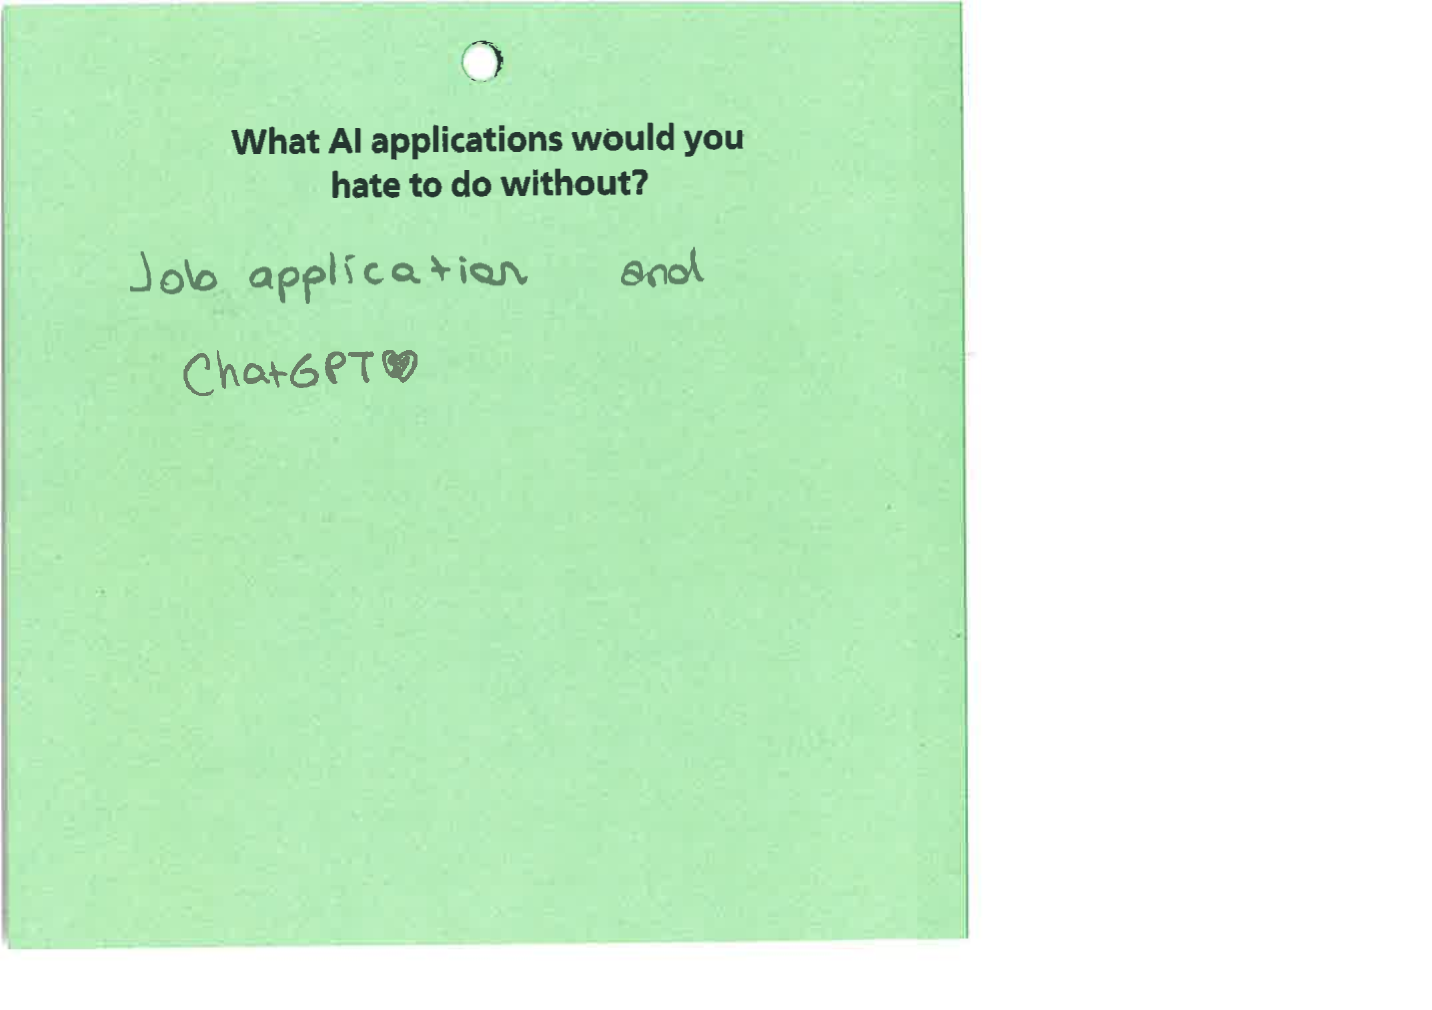 What AI applications would you
hate to do without?
Job application and
ChatGPT♥